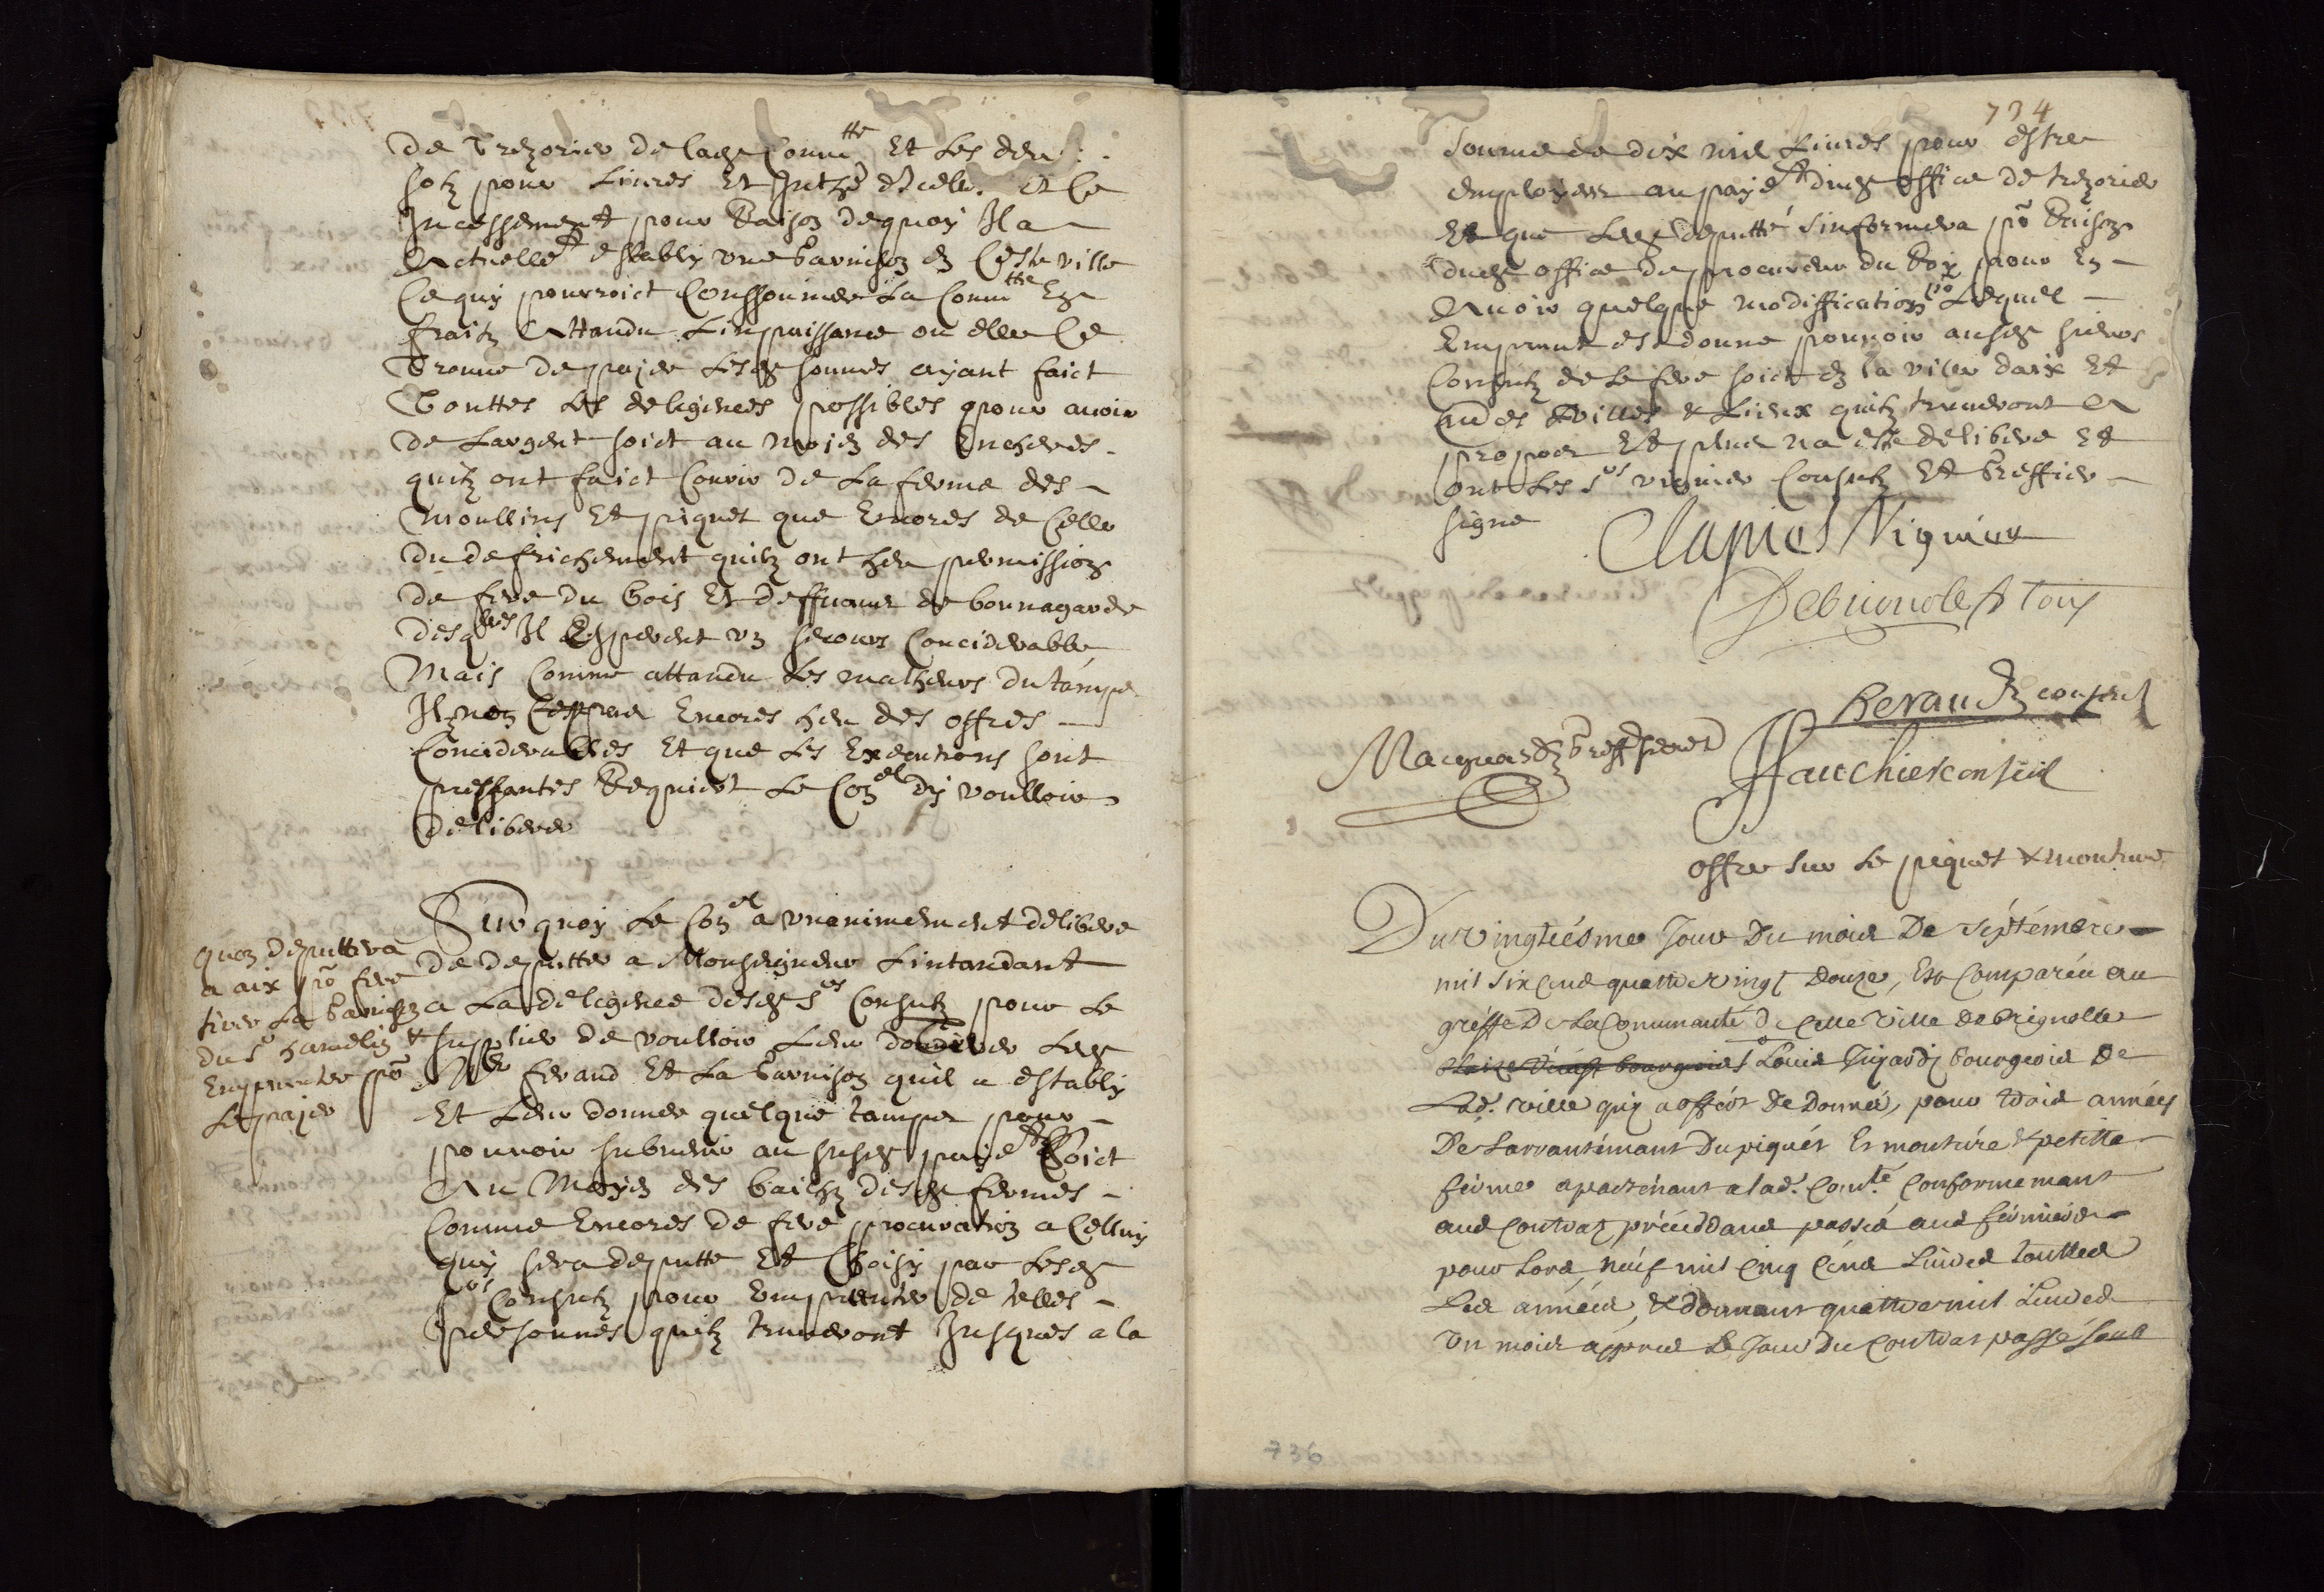 de Trezorier de lade Comm.tte Et Les deux
solz pour Livres Et Intherestz dicelles Et Ce
Incessement pour Raison dequoy Il a
Actuellemt estably une Garnison En Ceste ville
Ce quy pourroict Conssoumer La Comm.tte En
fraitz Attandu Linpuissance ou elle Ce
Trouve de payer Lesdes soumes ayant faict
Touttes Les deligences possibles pour avoir
de Largent soict au moien des Encheres
quilz ont faict Courir de La ferme des
moullins Et piquet que Encores de Celle
du defrichement quilz ont heu permission
de fere du bois Et deffuant de bonnagarde
desqles Il Esperent un secours Conciderable
Mais Comme attandu Les malheurs du tamps
Il non Encores heu des offres
Conciderables Et que Les Executions sont
pressantes Requiert Le Con.el dy voulloir
deliberer
Sur quoy Le Con.el a unanimement delibere
de deputter a Monseigneur Lintandant
a La deligence desdes S.rs Consulz pour Le
suplier de voulloir Leur Led
Me feraud Et La Garnison quil a estably
Et Leur donner quelque tamps pour
pouvoir subvenir au susd paiemt soict
Au Moyen des baichz desdes fermes
Comme Encores de fere procuration a Celluy
quy sera deputte Et Choisy par Lesdes
S.rs Consulz pour Emprunter de telles
personnes quilz truveront Jusques a la
quon deputtera
a aix po fere
tirer La Garnison
du Sr hamelin &
Emprunter po
Le payer
734
Soume de dix mil Livres pour estre
employee au payemt dud office de trezorier
Et que Led deputté sinformera po Raison
dud office de procureur du Roy pour En
Avoir quelque modiffication po Lequel
Emprunt est donne pouvoir ausdes sieurs
Consulz de Le fere soict En la ville daix Et
Aud es villes & Lieux quilz truveront A
propos Et plus na esté delibere Et
ont Les S.rs viguier Consulz Et Greffier
signe
Clapiers Viguier
Debrignolle
Beraud consul
Maquard Greff
Fauchier consul
offre sur Le piquet & mouture
Du Vingtiésme Jour Du mois De séptémbre
mil six cens quattre vingt Douze, Est Comparéu au
gréffe De La Communauté de Cette Ville de Brignolle
bourgeois So Louis bourgeois de
Lad.e Ville quy a offert De Donner, pour trois années
De Larrantémant Du piquét Et moutúre & petitte
férme apartenant a lad.e Com.té Conformemant
aux Contrat précédant passés aux férmiérs
pour Lors, néuf mil Cinq Céns Livres touttes
Les années, & donnant quattre mil Livres
un mois aprres Le Jour Du Contrat passé sans
736